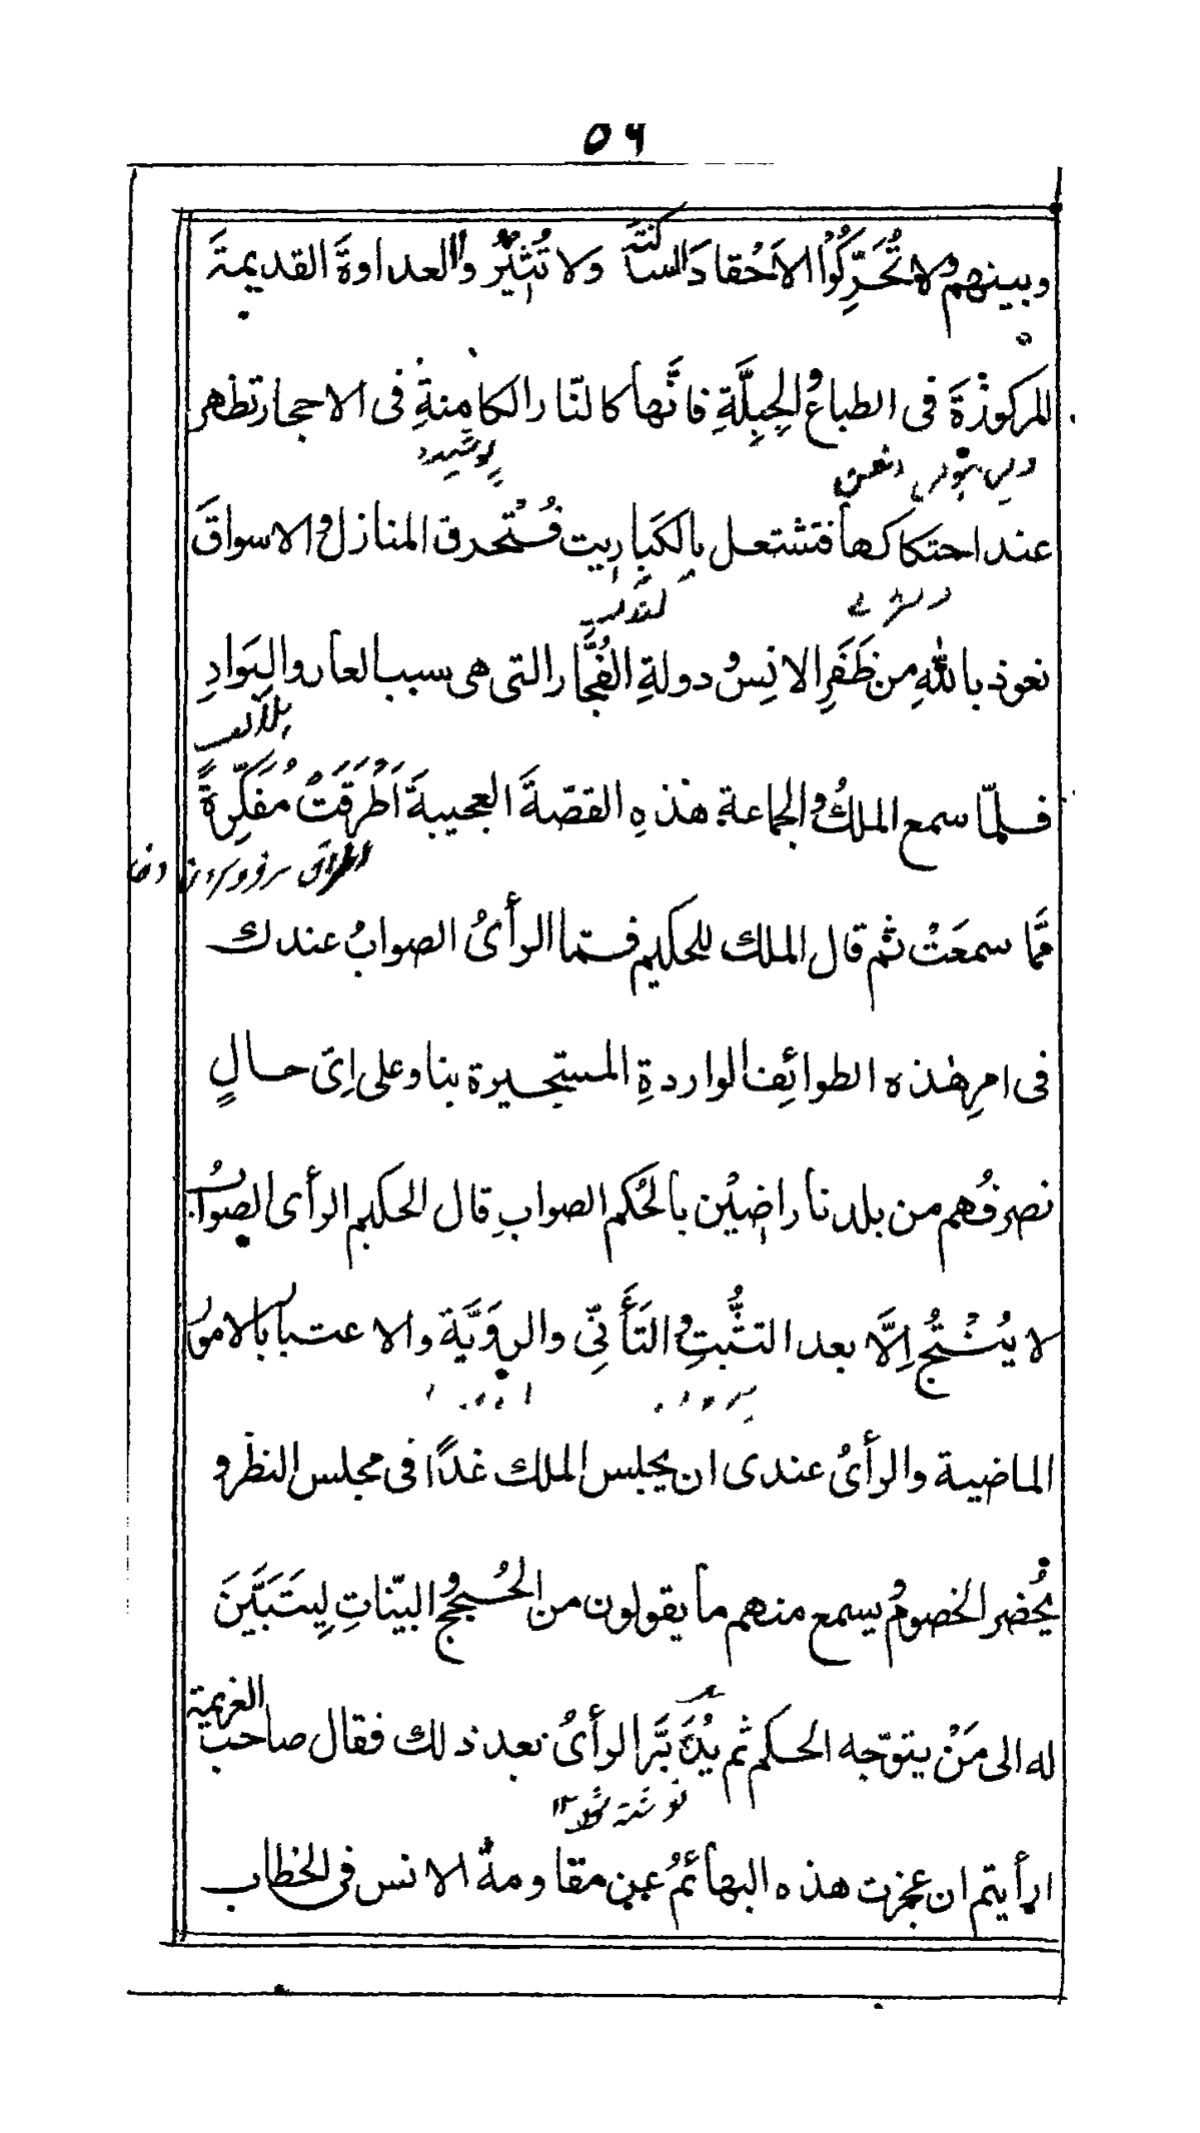 ٥٦
وبينهم ولا تُحَرِّكُوْا الاَحْقادَ الساكنةَ ولا تُثِيْرُوْا العداوةَ القديمةَ
المركوزْةَ فى الطباعِ والجِبِلَّةِ فانَّها كالنّار الكامِنةِ فى الاحجار تظهر
پوشيده
عند احتكاكها فتشتعل بالكَبِارِيت فتُحرق المنازل والاسواقَ
نعوذ بالله من ظَفَرِ الانِس ودولةِ الفُجَّار التى هى سبب العار والبَوَادِ
فلمّا سمع الملكُ والجماعة هذهِ القصّةَ العجيبةَ اَطْرَقَتْ مُفَكِّرةً
ممَّا سمعَتْ ثم قال الملك للحكيم فما الرأىُ الصوابُ عندك
فى امرِ هٰذه الطوائِف الواردةِ المستجيرة بنا وعلى اىّ حالٍ
نصرفُهم من بلدنا راضِيْن بالحُكم الصوابِ قال الحكيم الرأى الصوابُ
لا يُنْتَجُ اِلَّا بعد التثُّبتِ والتَأَنِّى والرِوَيَّة والاعتبار بالامور
الماضية والرأىُ عندى ان يجلس الملك غدًا فى مجلس النظر و
يُحْضر الخصومُ يسمع منهم ما يقولون من الحُججِ والبيّناتِ لِيتَبَيَّنَ
له الى مَنْ يتوّجه الحكم ثم يُدَبَّر الرأىُ بعد ذلك فقال صاحب العزيمة
ارأيتم ان عجزت هذه البهائمُ عن مقاومة الانس فى الخطاب